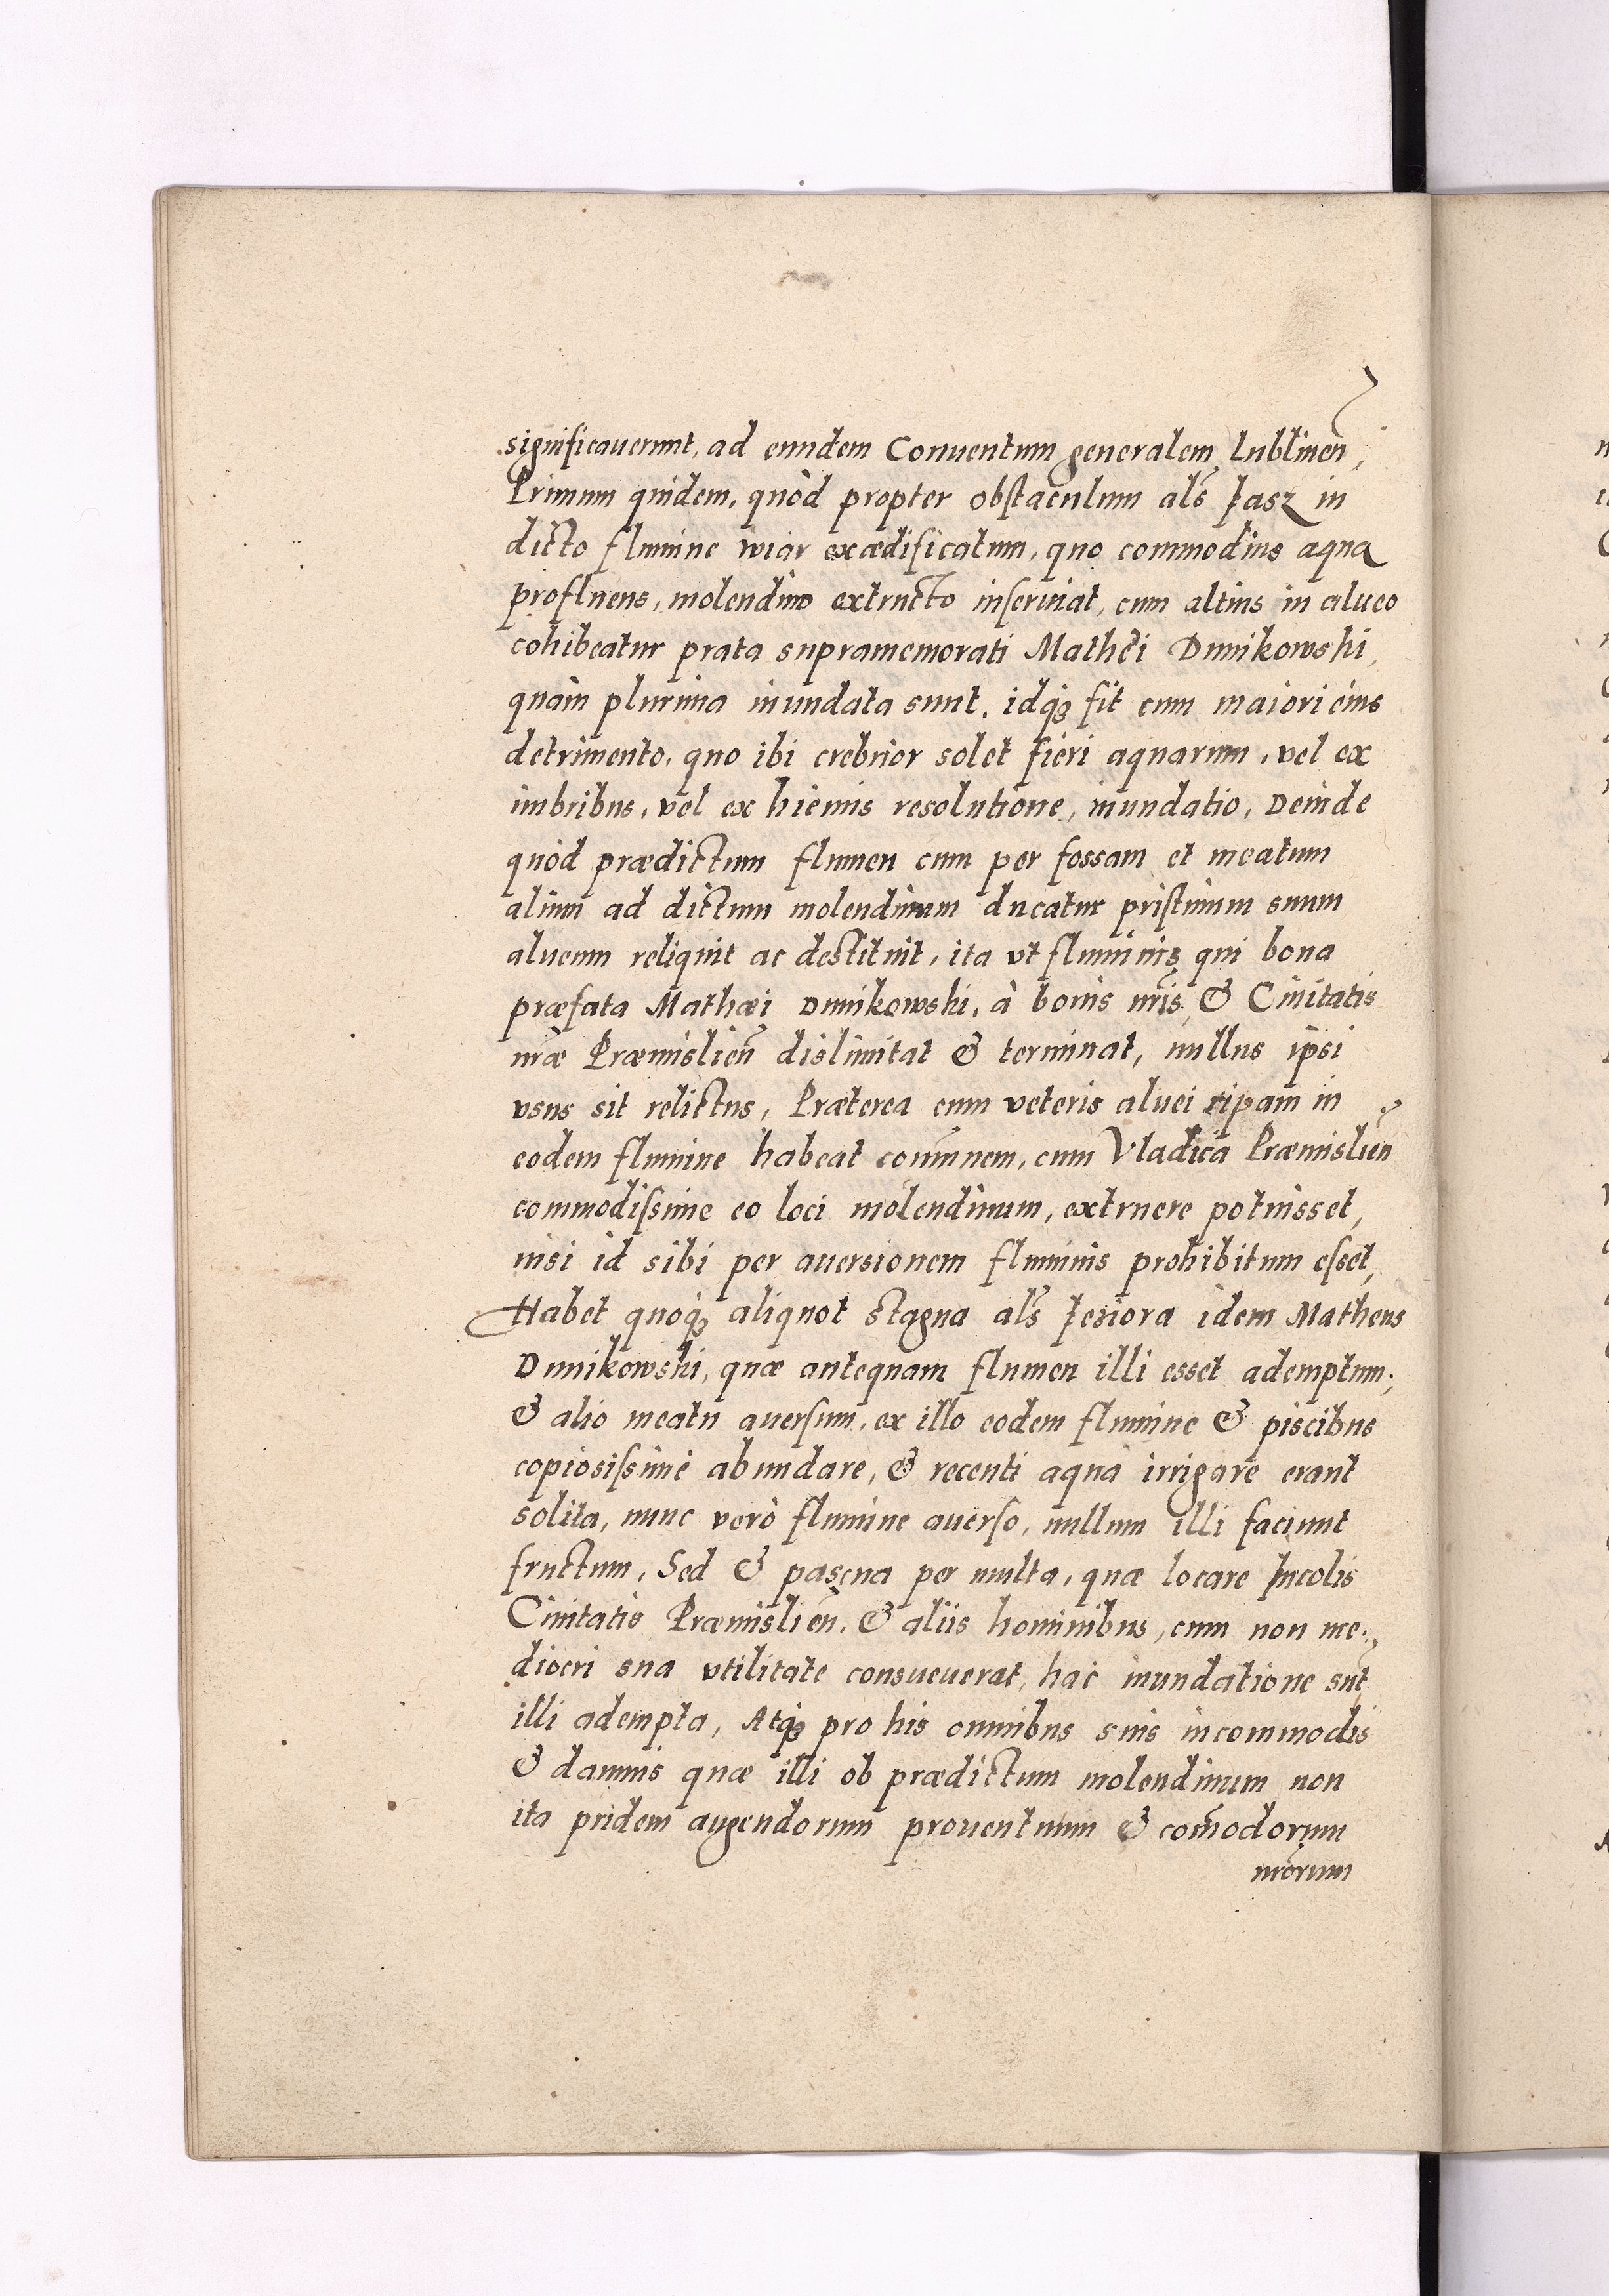 significauerunt, ad eundem Conuentum generalem Lublinen̄,
Primum quidem, quòd propter obstaculum als̃ Jasz in
dicto flumine wiar exædificatum, quo commodius aqua
profluens, molendino extructo inseruiat, cum altius in alueo
cohibeatur prata supramemorati Mathei Dunikowski,
quàm plurima inundata sunt, idq₃ fit cum maiori eius
detrimento, quo ibi crebrior solet fieri aquarum, vel ex
imbribus, vel ex hiemis resolutione, inundatio, Deinde
quòd prædictum flumen cum per fossam et meatum
alium ad dictum molendinum ducatur pristinum suum
alueum reliquit ac destituit, ita vt fluminis qui bona
præfata Mathæi Dunikowski, à bonis nr̃is, & Ciuitatis
nr̃æ Præmislien̄ dislimitat & terminat, nullus ipsi
vsus sit relictus, Præterea cum veteris aluei ripam in
eodem flumine habeat com̃unem, cum Vladica Præmislien̄
commodissime eo loci molendinum, extruere potuisset,
nisi id sibi per auersionem fluminis prohibitum esset,
Habet quoq₃ aliquot stagna als̃ Jeziora idem Matheus
Dunikowski, quæ antequam flumen illi esset ademptum;
& alio meatu auersum, ex illo eodem flumine & piscibus
copiosissimè abundare, & recenti aqua irrigare erant
solita, nunc verò flumine auerso, nullum illi faciunt
fructum, Sed & pascua per multa, quæ locare Incolis
Ciuitatis Præmislien̄, & aliis hominibus, cum non me-
diocri sua vtilitate consueuerat, hac inundatione sūt
illi adempta, Atq₃ pro his omnibus suis incommodis
& damnis quæ illi ob prædictum molendinum non
ita pridem augendorum prouentuum & com̃odorum
nr̃orum